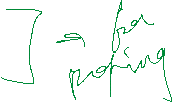 ] → for
proving